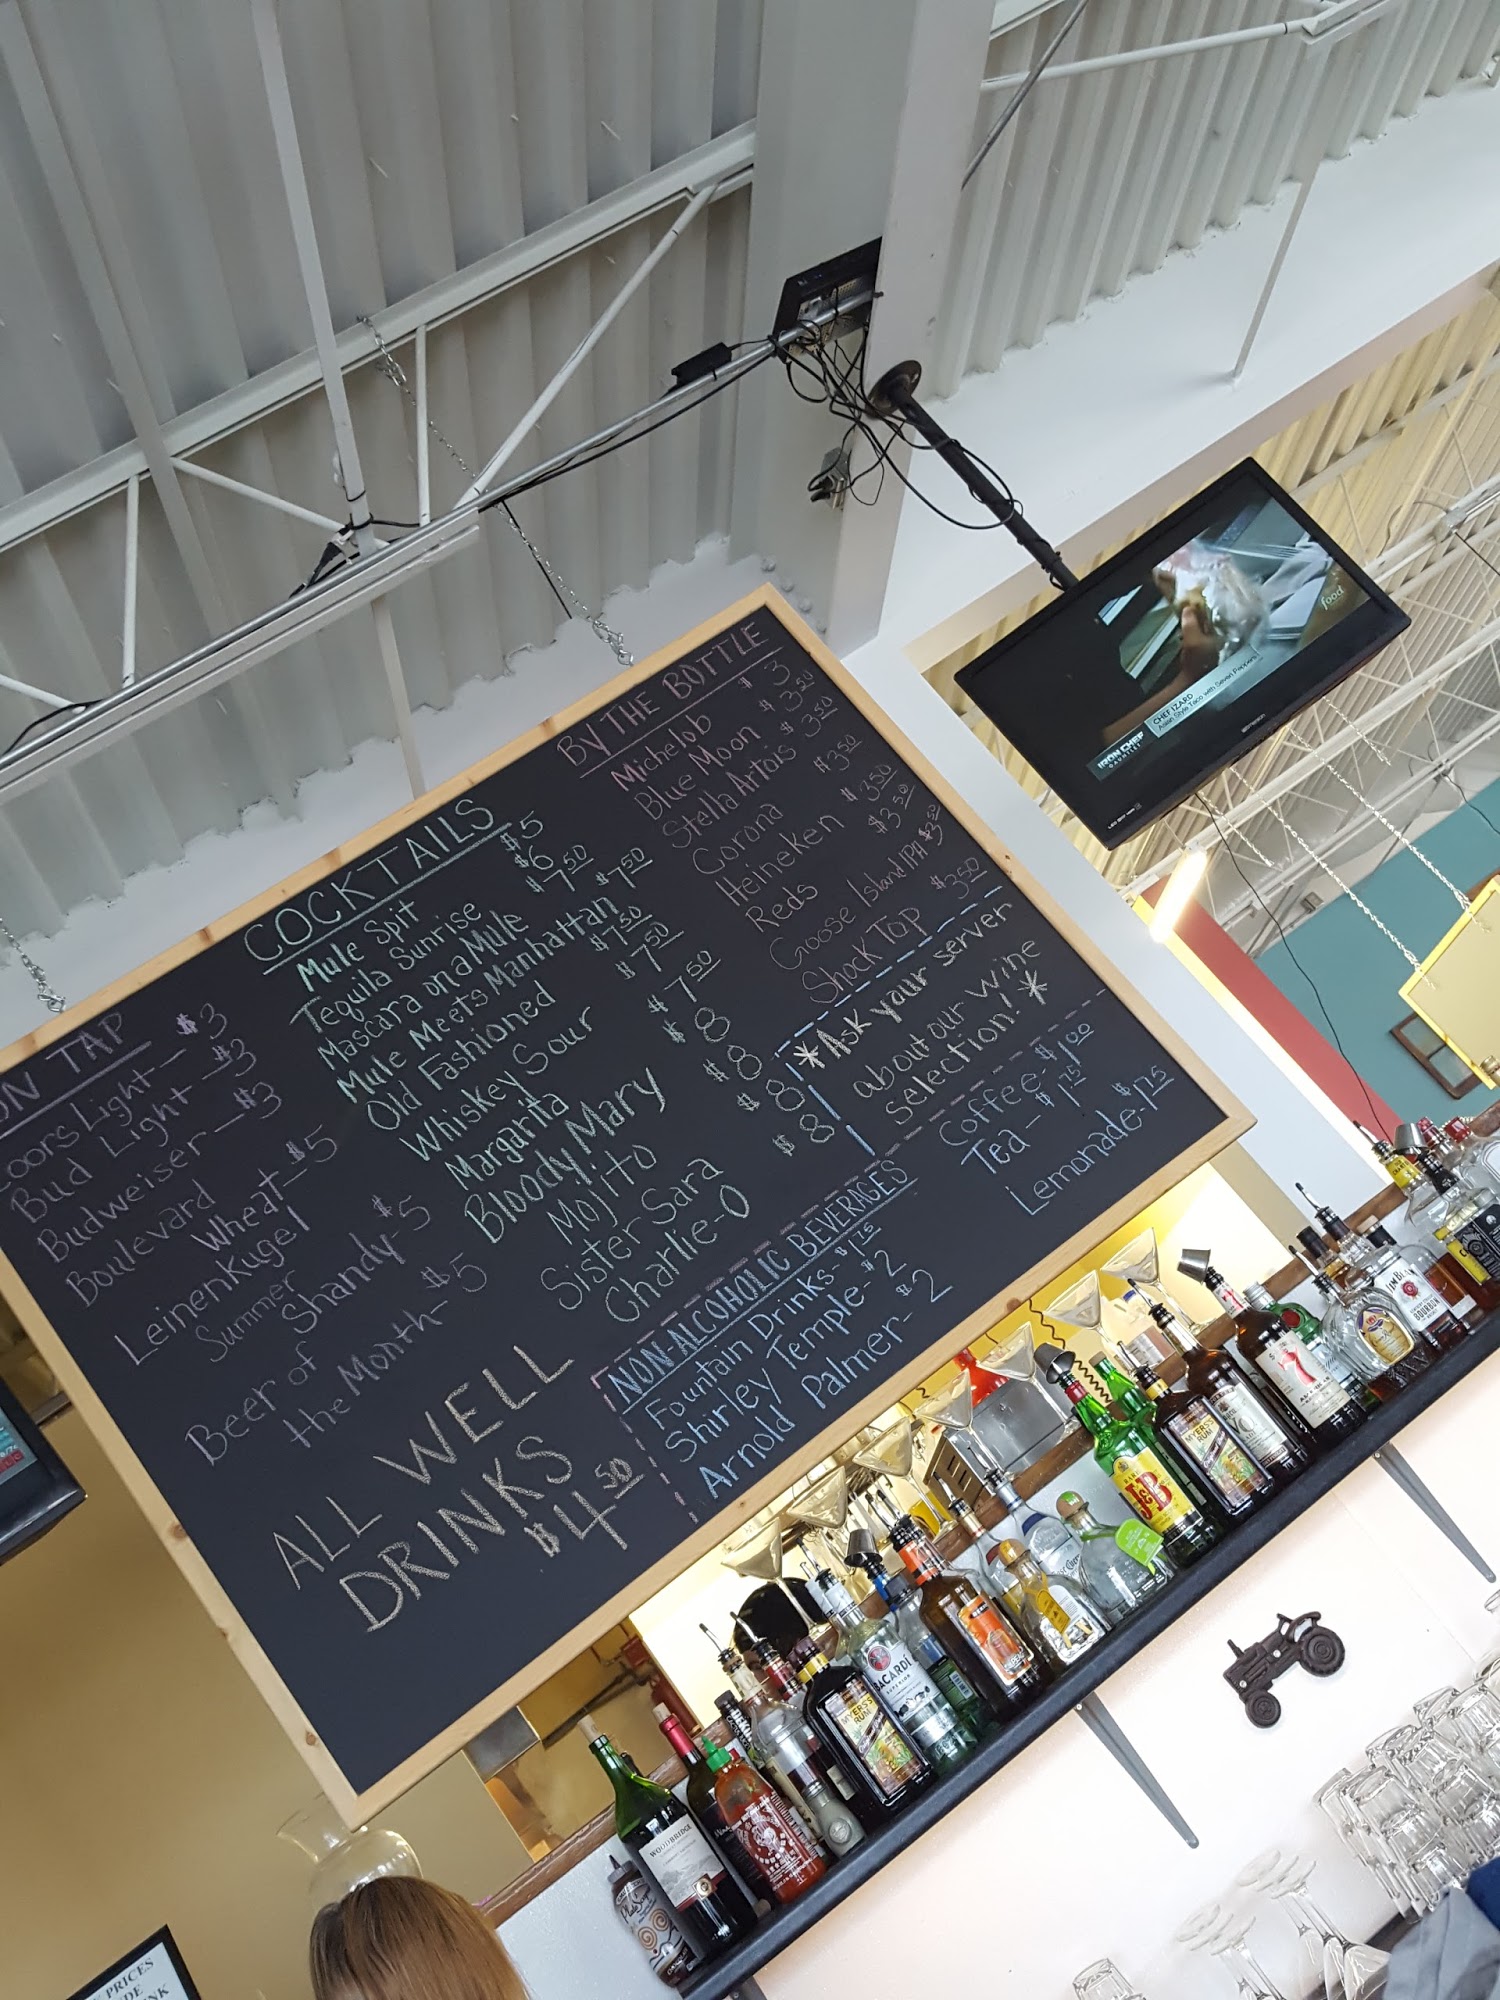 ON TAP
Coors Light — $3
Bud Light — $3
Budweiser — $3
Boulevard
Wheat - $5
Leinenkugel
Summer
Shandy - $5
Beer of
the Month - $5
ALL WELL
DRINKS
$4.50
COCKTAILS
Mule Spit $5
Tequila Sunrise $6
Mascara on a Mule $7.50
Mule Meets Manhattan $7.50
Old Fashioned $7.50
Whiskey Sour $7.50
Margarita $7.50
Bloody Mary $8
Mojito $8
Sister Sara $8
Charlie-O $8
BY THE BOTTLE
Michelob $3
Blue Moon $3.50
Stella Artois $3.50
Corona $3.50
Heineken $3.50
Reds $3.50
Goose Island IPA $3.50
Shock Top $3.50
*Ask your server
about our wine
selection! *
NON-ALCOHOLIC BEVERAGES
Fountain Drinks - $1.75
Shirley Temple - $2
Arnold Palmer - $2
Coffee - $1.00
Tea — $1.75
Lemonade - $1.75
food
CHEF IZARD
Asian Style Taco with Seven Peppers
IRON CHEF
GAUNTLET
WOODBRIDGE
MYERS'S
RUM
BACARDÍ
SUPERIOR
J&B
MYERS'S
RUM
7
JIM BEAM
BOURBON
PRICES